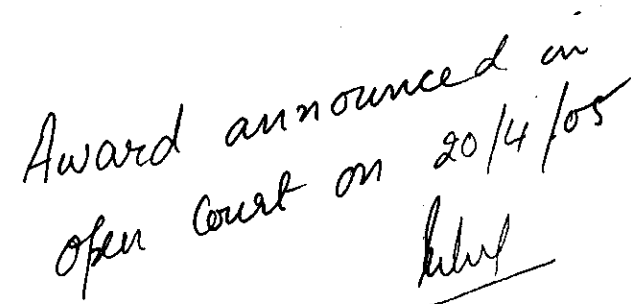 Award announced in
open Court on 20/4/05